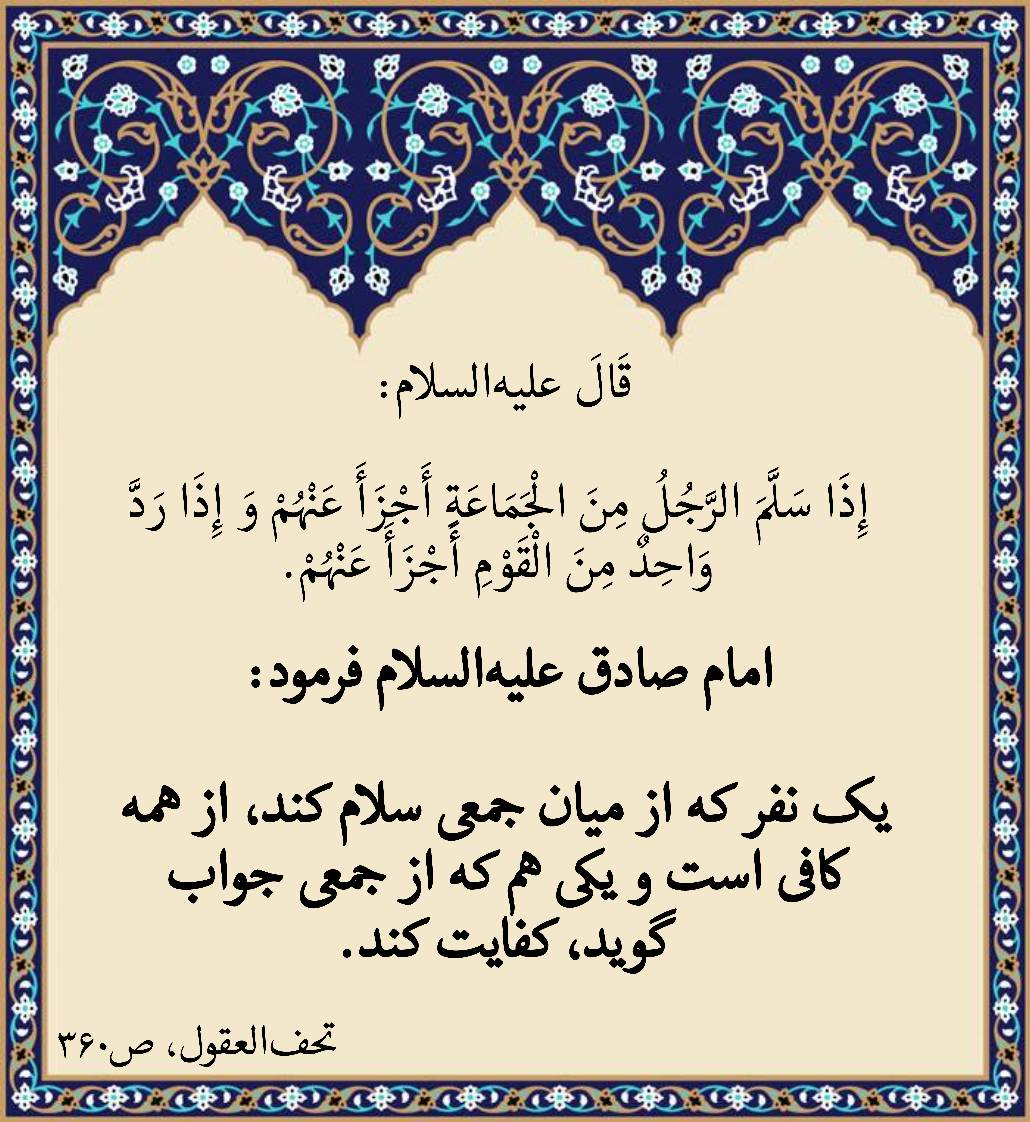 قَالَ علیه‌السلام:
إِذَا سَلَّمَ الرَّجُلُ مِنَ الْجَمَاعَةِ أَجْزَأَ عَنْهُمْ وَ إِذَا رَدَّ
وَاحِدٌ مِنَ الْقَوْمِ أَجْزَأَ عَنْهُمْ.
امام صادق علیه‌السلام فرمود:
یک نفر که از میان جمعی سلام کند، از همه
کافی است و یکی هم که از جمعی جواب
گوید، کفایت کند.
تحف‌العقول، ص۳۶۰